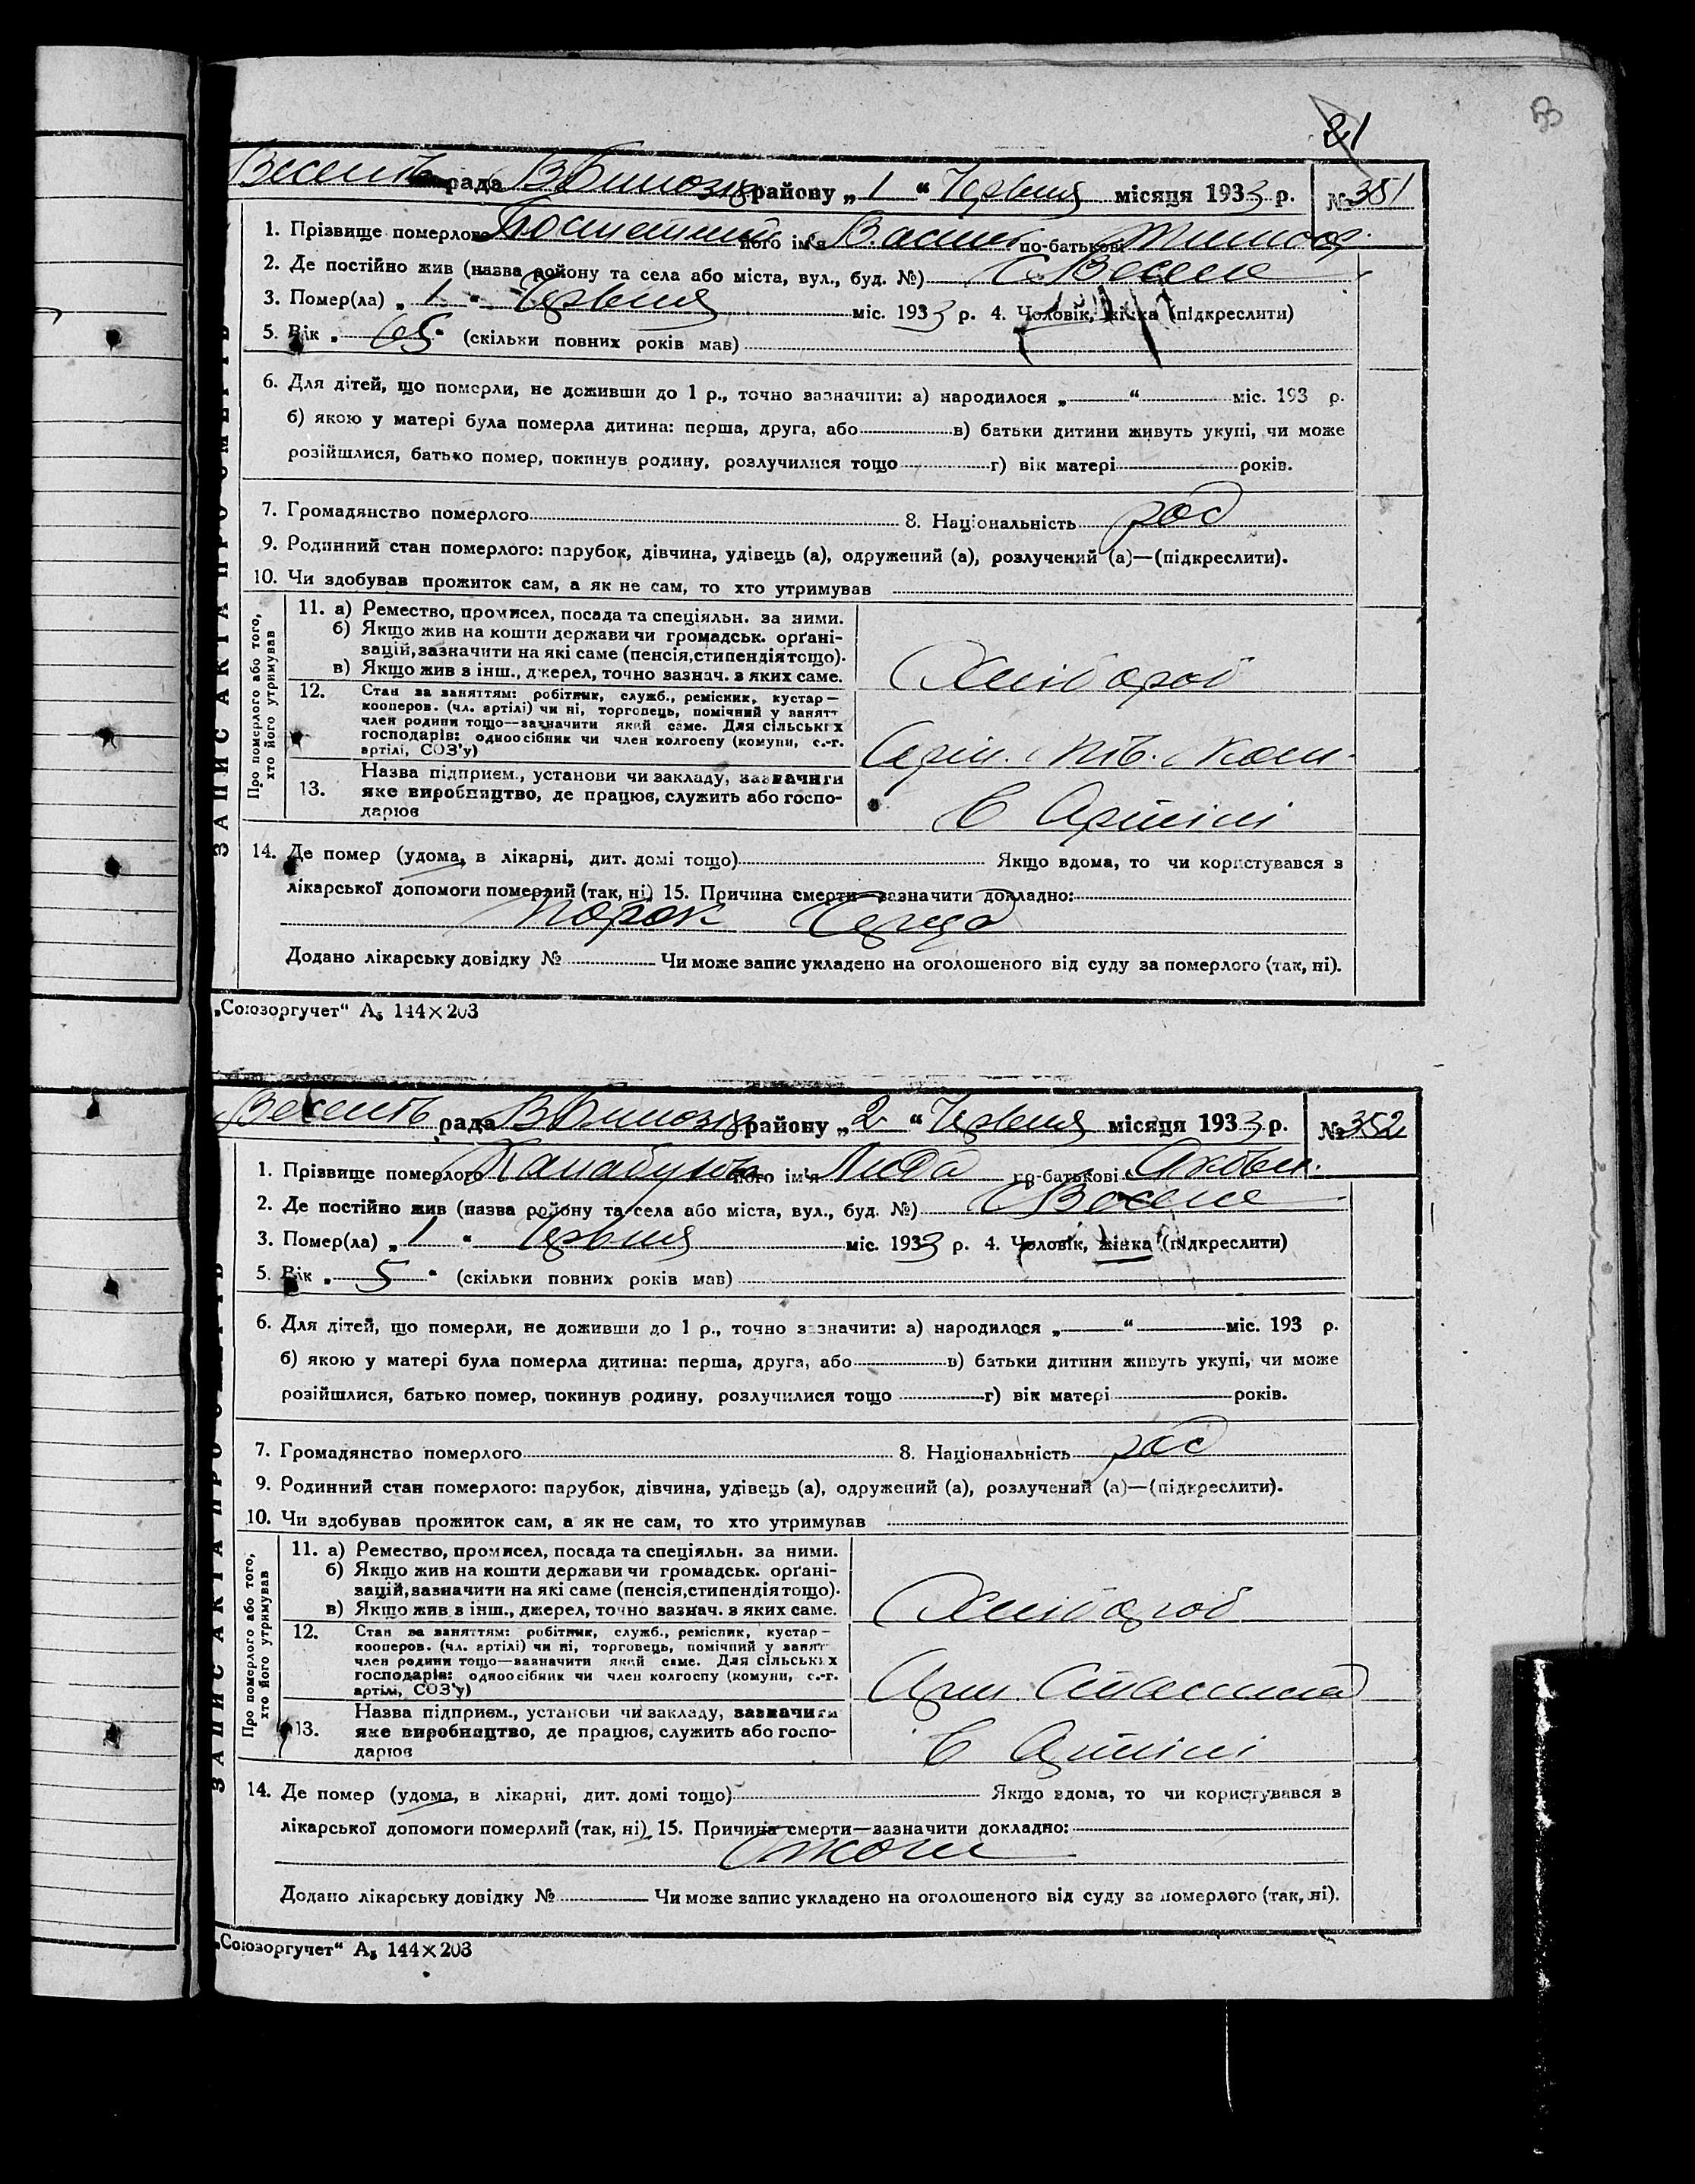 81
Веселів рада В Билозір району „ 1 “ Червня місяця 1933 р. № 351
1. Прізвище померлого його ім'я Василь по-батькові Тимоф.
2. Де постійно жив (назва району та села або міста, вул., буд. №) С. Веселе
3. Помер(ла) „ 1 “ Червня міс. 1933 р. 4. Чоловік, жінка (підкреслити)
5. Вік „ 65 “ (скільки повних років мав)
6. Для дітей, що померли, не доживши до 1 р., точно зазначити: а) народилося „ “ міс. 193 р.
б) якою у матері була померла дитина: перша, друга, або в) батьки дитини живуть укупі, чи може
розійшлися, батько помер, покинув родину, розлучилися тощо г) вік матері років.
7. Громадянство померлого 8. Національність рос
9. Родинний стан померлого: парубок, дівчина, удівець (а), одружений (а), розлучений (а)—(підкреслити).
10. Чи здобував прожиток сам, а як не сам, то хто утримував
ЗАПИС АКТА ПРО СМЕРТЬ
Про померлого або того,
хто його утримував
11. а) Ремество, промисел, посада та спеціяльн. за ними.
б) Якщо жив на кошти держави чи громадськ. орґані-
зацій, зазначити на які саме (пенсія, стипендія тощо).
в) Якщо жив з інш., джерел, точно зазнач. з яких саме.
Хлібороб
12. Стан за заняттям: робітник, служб., ремісник, кустар—
кооперов. (чл. артілі) чи ні, торговець, помічний у занятт
член родини тощо—зазначити який саме. Для сільських
господарів: одноосібник чи член колгоспу (комуни, с.-г.
артілі, СОЗ'у)
13. Назва підприєм., установи чи закладу, зазначити
яке виробництво, де працює, служить або госпо-
дарює
В Артілі
14. Де помер (удома, в лікарні, дит. домі тощо) Якщо вдома, то чи користувався з
лікарської допомоги померлий (так, ні) 15. Причина смерти—зазначити докладно:
порок Серца
Додано лікарську довідку № Чи може запис укладено на оголошеного від суду за померлого (так, ні).
„Союзоргучет“ А₅ 144×203
Веселів рада В Билозір району „ 2 “ Червня місяця 1933 р. № 352
1. Прізвище померлого його ім'я Лида по-батькові Яковл.
2. Де постійно жив (назва району та села або міста, вул., буд. №) С Веселе
3. Помер(ла) „ 1 “ Червня міс. 1933 р. 4. Чоловік, жінка (підкреслити)
5. Вік „ 5 “ (скільки повних років мав)
6. Для дітей, що померли, не доживши до 1 р., точно зазначити: а) народилося „ “ міс. 193 р.
б) якою у матері була померла дитина: перша, друга, або в) батьки дитини живуть укупі, чи може
розійшлися, батько помер, покинув родину, розлучилися тощо г) вік матері років.
7. Громадянство померлого 8. Національність рос
9. Родинний стан померлого: парубок, дівчина, удівець (а), одружений (а), розлучений (а)—(підкреслити).
10. Чи здобував прожиток сам, а як не сам, то хто утримував
ЗАПИС АКТА ПРО СМЕРТЬ
Про померлого або того,
хто його утримував
11. а) Ремество, промисел, посада та спеціяльн. за ними.
б) Якщо жив на кошти держави чи громадськ. орґані-
зацій, зазначити на які саме (пенсія, стипендія тощо).
в) Якщо жив з інш., джерел, точно зазнач. з яких саме.
Хлібороб
12. Стан за заняттям: робітник, служб., ремісник, кустар—
кооперов. (чл. артілі) чи ні, торговець, помічний у занят
член родини тощо—зазначити який саме. Для сільських
господарів: одноосібник чи член колгоспу (комуни, с.-г.
артілі, СОЗ'у)
Арт. Сталина
13. Назва підприєм., установи чи закладу, зазначити
яке виробництво, де працює, служить або госпо-
дарює
В Артілі
14. Де помер (удома, в лікарні, дит. домі тощо) Якщо вдома, то чи користувався з
лікарської допомоги померлий (так, ні) 15. Причина смерти—зазначити докладно:
Додано лікарську довідку № Чи може запис укладено на оголошеного від суду за померлого (так, ні).
„Союзоргучет“ А₅ 144×203